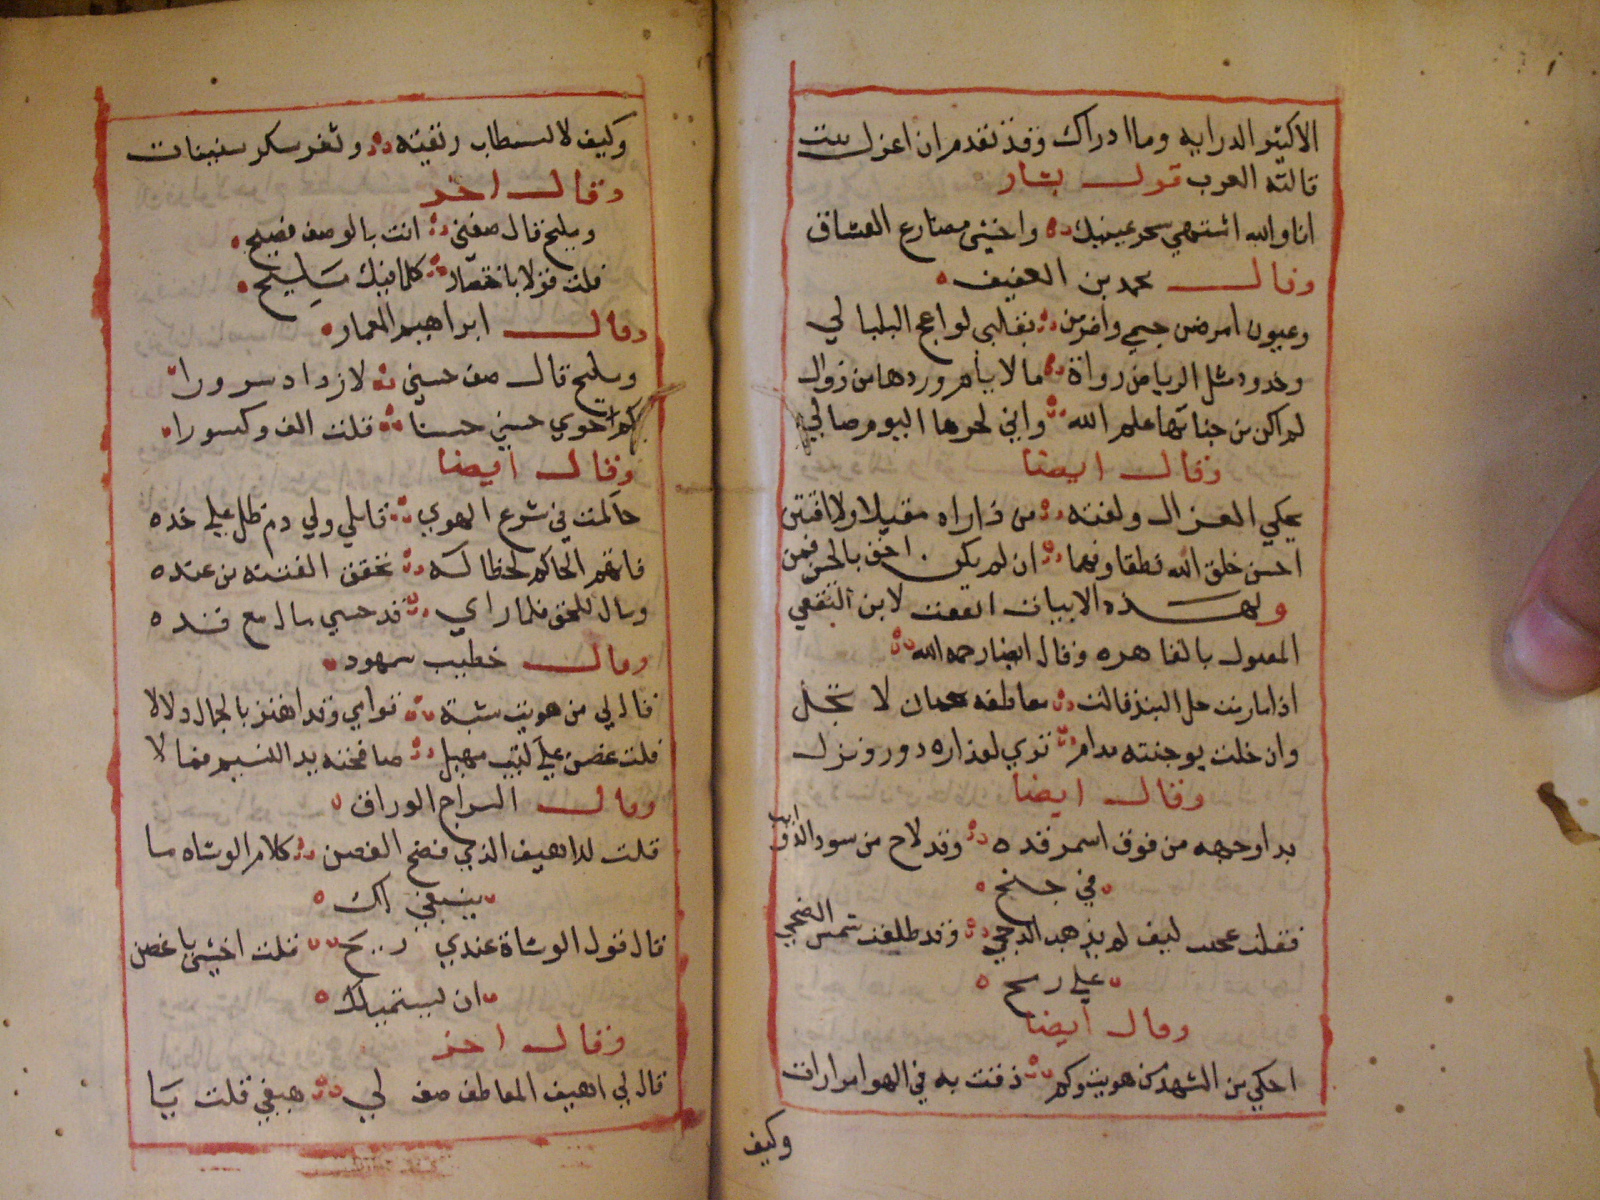 الاكيو الدرايه وما ادراك وقد تقدم ان اغزل بيت
قالته العرب قول بشار
انا والله اشتهي سحر عينيك واخشى مصارع العشاق
وقال محمد بن العفيف
وعيون امرضن جسمي واضرمن بقلبي لواعج البلبالي
وخدود مثل الرياض رواة ما لايام وردها من زوال
لم اكن من جناتها علم الله واني لحرها اليوم صالي
وقال ايضا
يحكي الغزال ولفته من ذا راه مقبلا ولا افتتن
احسن خلق الله نطقا وفما ان لم يكن احق بالحسن فمن
ولهذه الابيات اتفقت لابن الثقفي
المقتول بالقاهره وقال ايضا رحمه الله
اذا ما رمت حل البند قالت معاطفه حمان لا تحل
وان خلت بوجنته مدام تري لعذاره دور ونزل
وقال ايضا
بدا وجهه من فوق اسمر قده وقد لاح من سود الذوايب
في جنح
فقلت عجب كيف لم يذهب الدجي وقد طلعت شمس الضحي
علي رمح
وقال ايضا
احلي من الشهد من هويت وكم ذقت به في الهوا مرارات
وكيف
وكيف لا تستطاب رتقيته وثغر سكر سنينات
وقال اخر
ومليح قال صفني انت بالوصف فصيح
قلت قولا باختصار كلما فيك مليح
وقال ابراهيم المعمار
ومليح قال صف حسني لازداد سرورا
كم احوي حسني حسنا قلت الف وكسورا
وقال ايضا
حاكمت في شرع الهوي قاتلي ولي دم طل علي خده
فاتهم الحاكم لحظا له تحقق الفتنه من عنده
ومال للحق فلما راي قد حسي مال مع قده
وقال خطيب سمهود
قال لي من هويت شبه قوامي وقد اهتز بالجمال دلالا
قلت غصن علي كثيب مهيل صافحته يد النسيم فمالا
وقال السراج الوراق
قلت للاهيف الذي فضح الغصن كلام الوشاه ما
ينبغي لك
قال قول الوشاة عندي ريح قلت اخشي يا غصن
ان يستميلك
وقال اخر
قال لي اهيف المعاطف صف لي هيفي قلت يا